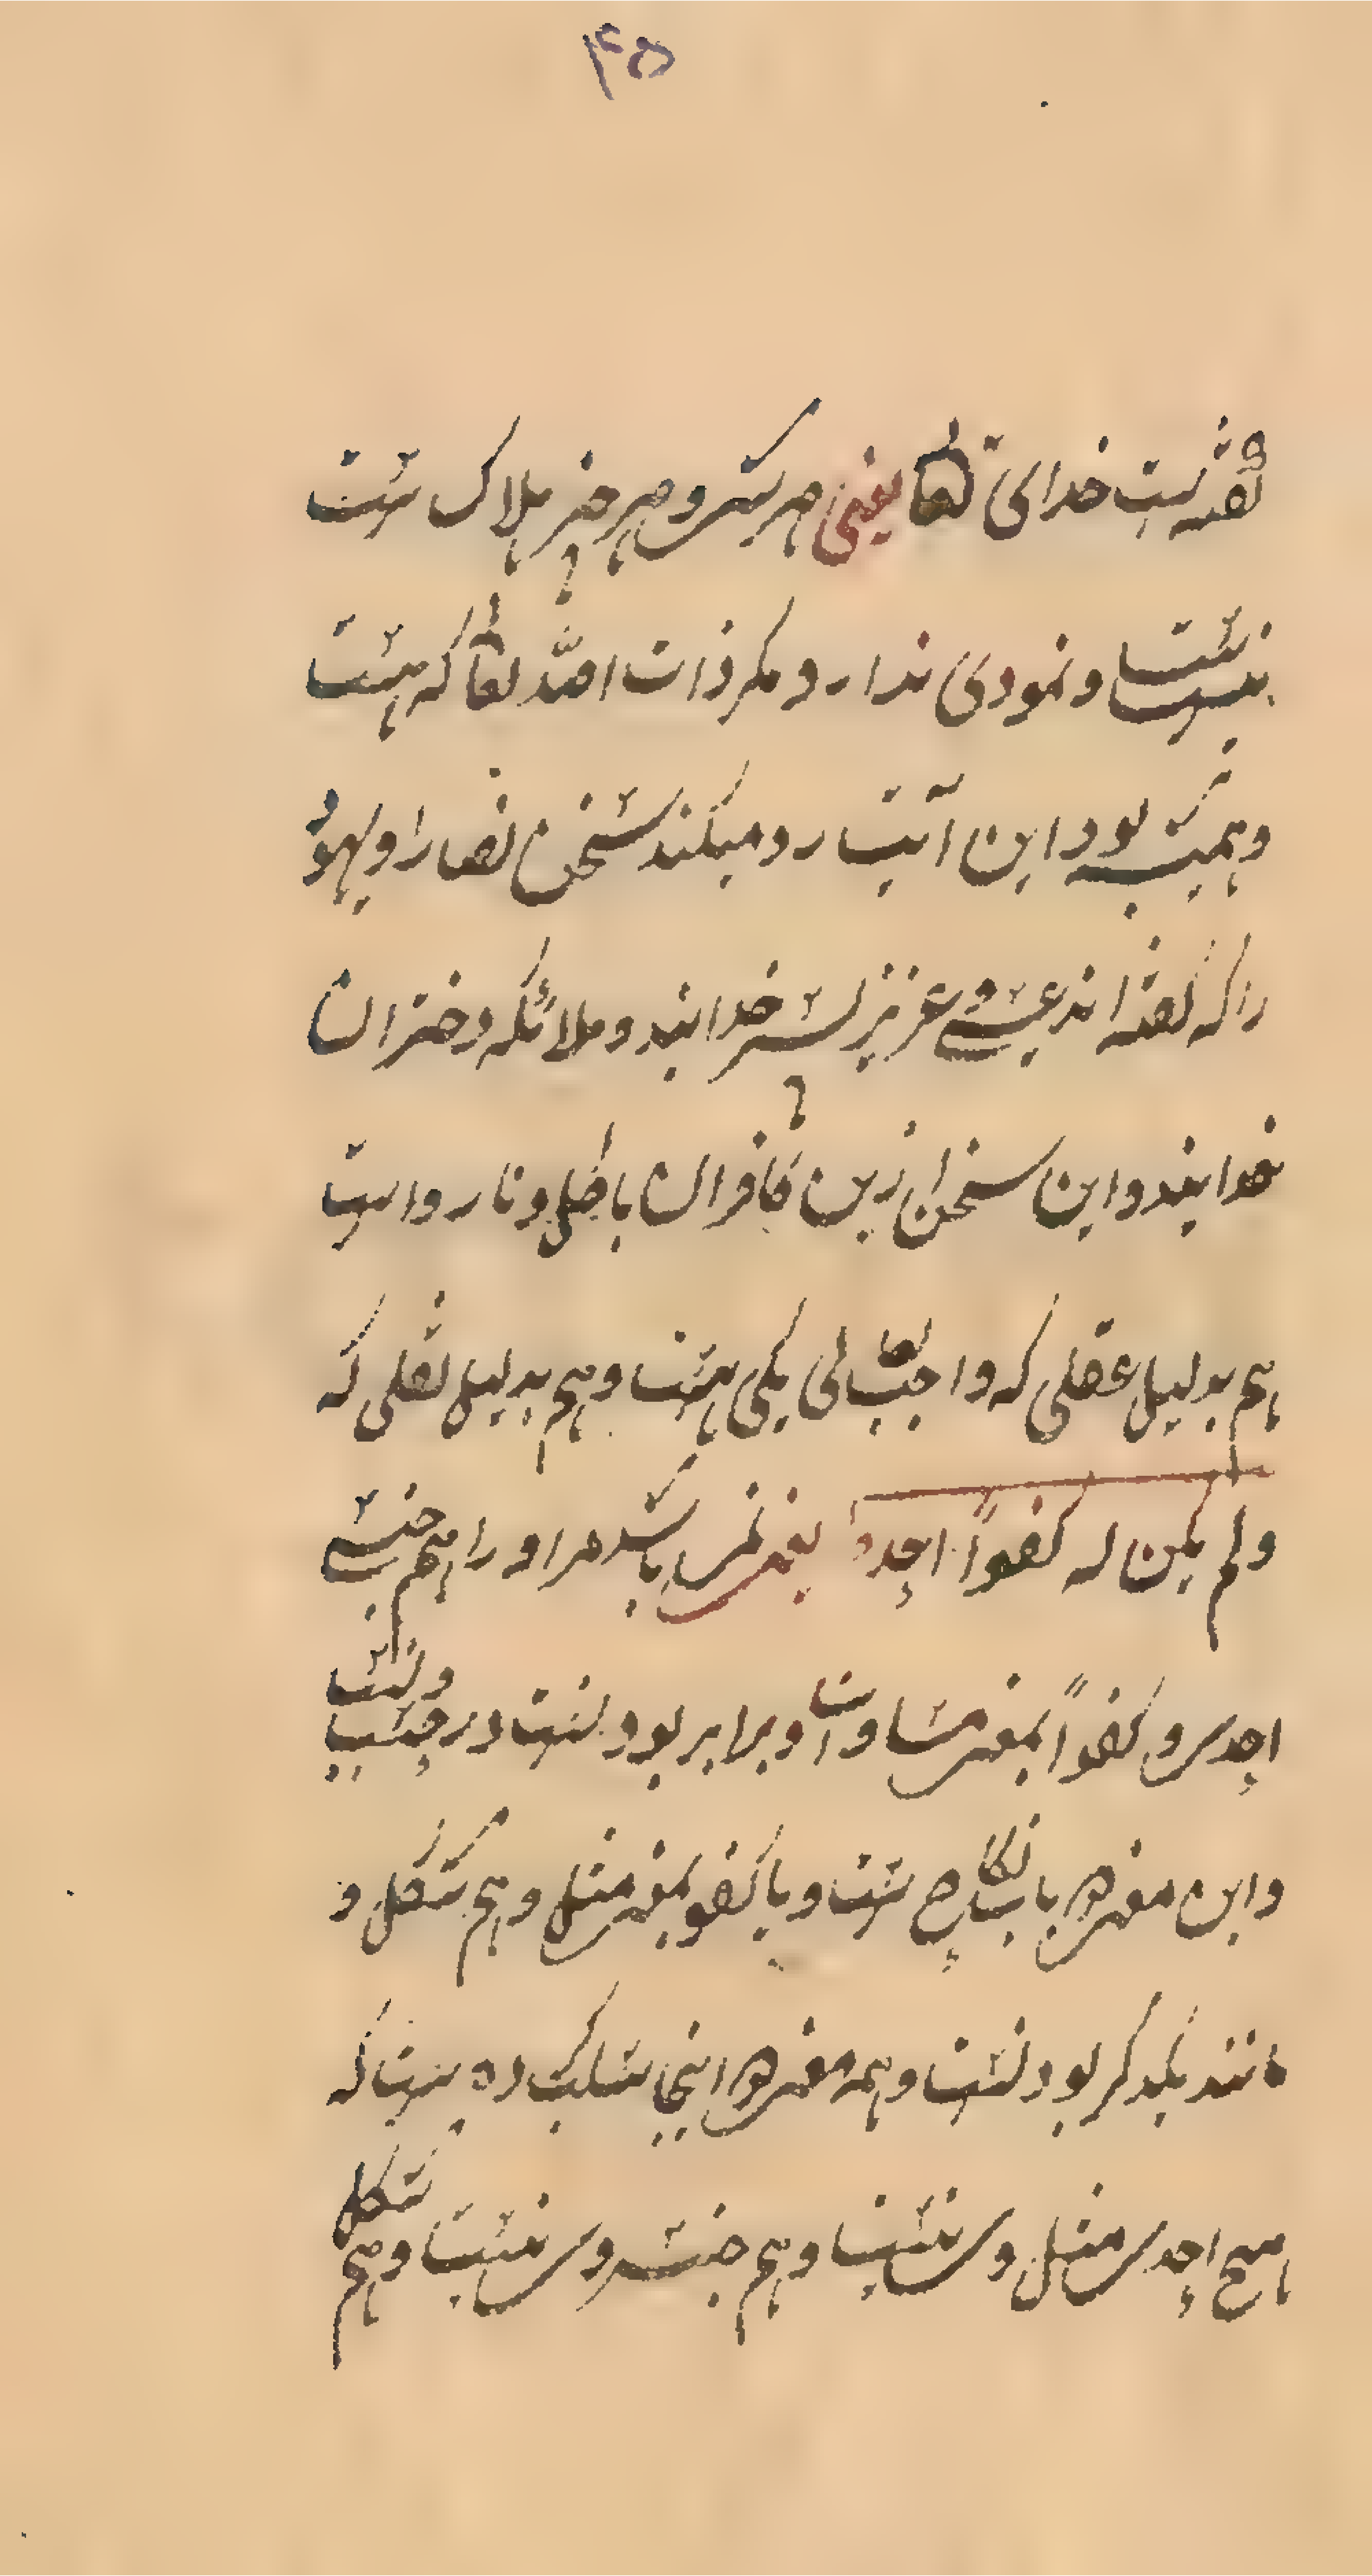 ۴۵
گفته است خدای تعا یعنی هر شی و هر چیز هلاک است
نیست و نمودی ندارد مگر ذات الله تعا که هست
و همیشه بود این آیت رد میکند سخن نصارا و یهود
را که گفته اند عیسی و عزیز پسر خدایند و ملائکه دختران
خدایند و این سخن ازین کافران باطل و نارواست
هم بدلیل عقلی که واجب تعالی یکی هست و هم بدلیل نقلی که
ولم یکن له کفواً احد یعنی نمی باشد مر او را هم جنسی
احدی و کفواً بمعنی مساوات و برابر بودنست در حسب و نسب
و این معنی در باب نکاح است و یا کفو بمعنی مثل و هم شکل و
مانند یکدیگر بودنست و همه معنی در اینجا شاکیده است که
هیچ احدی مثل وی نیست و هم جنس وی نیست و هم شکل